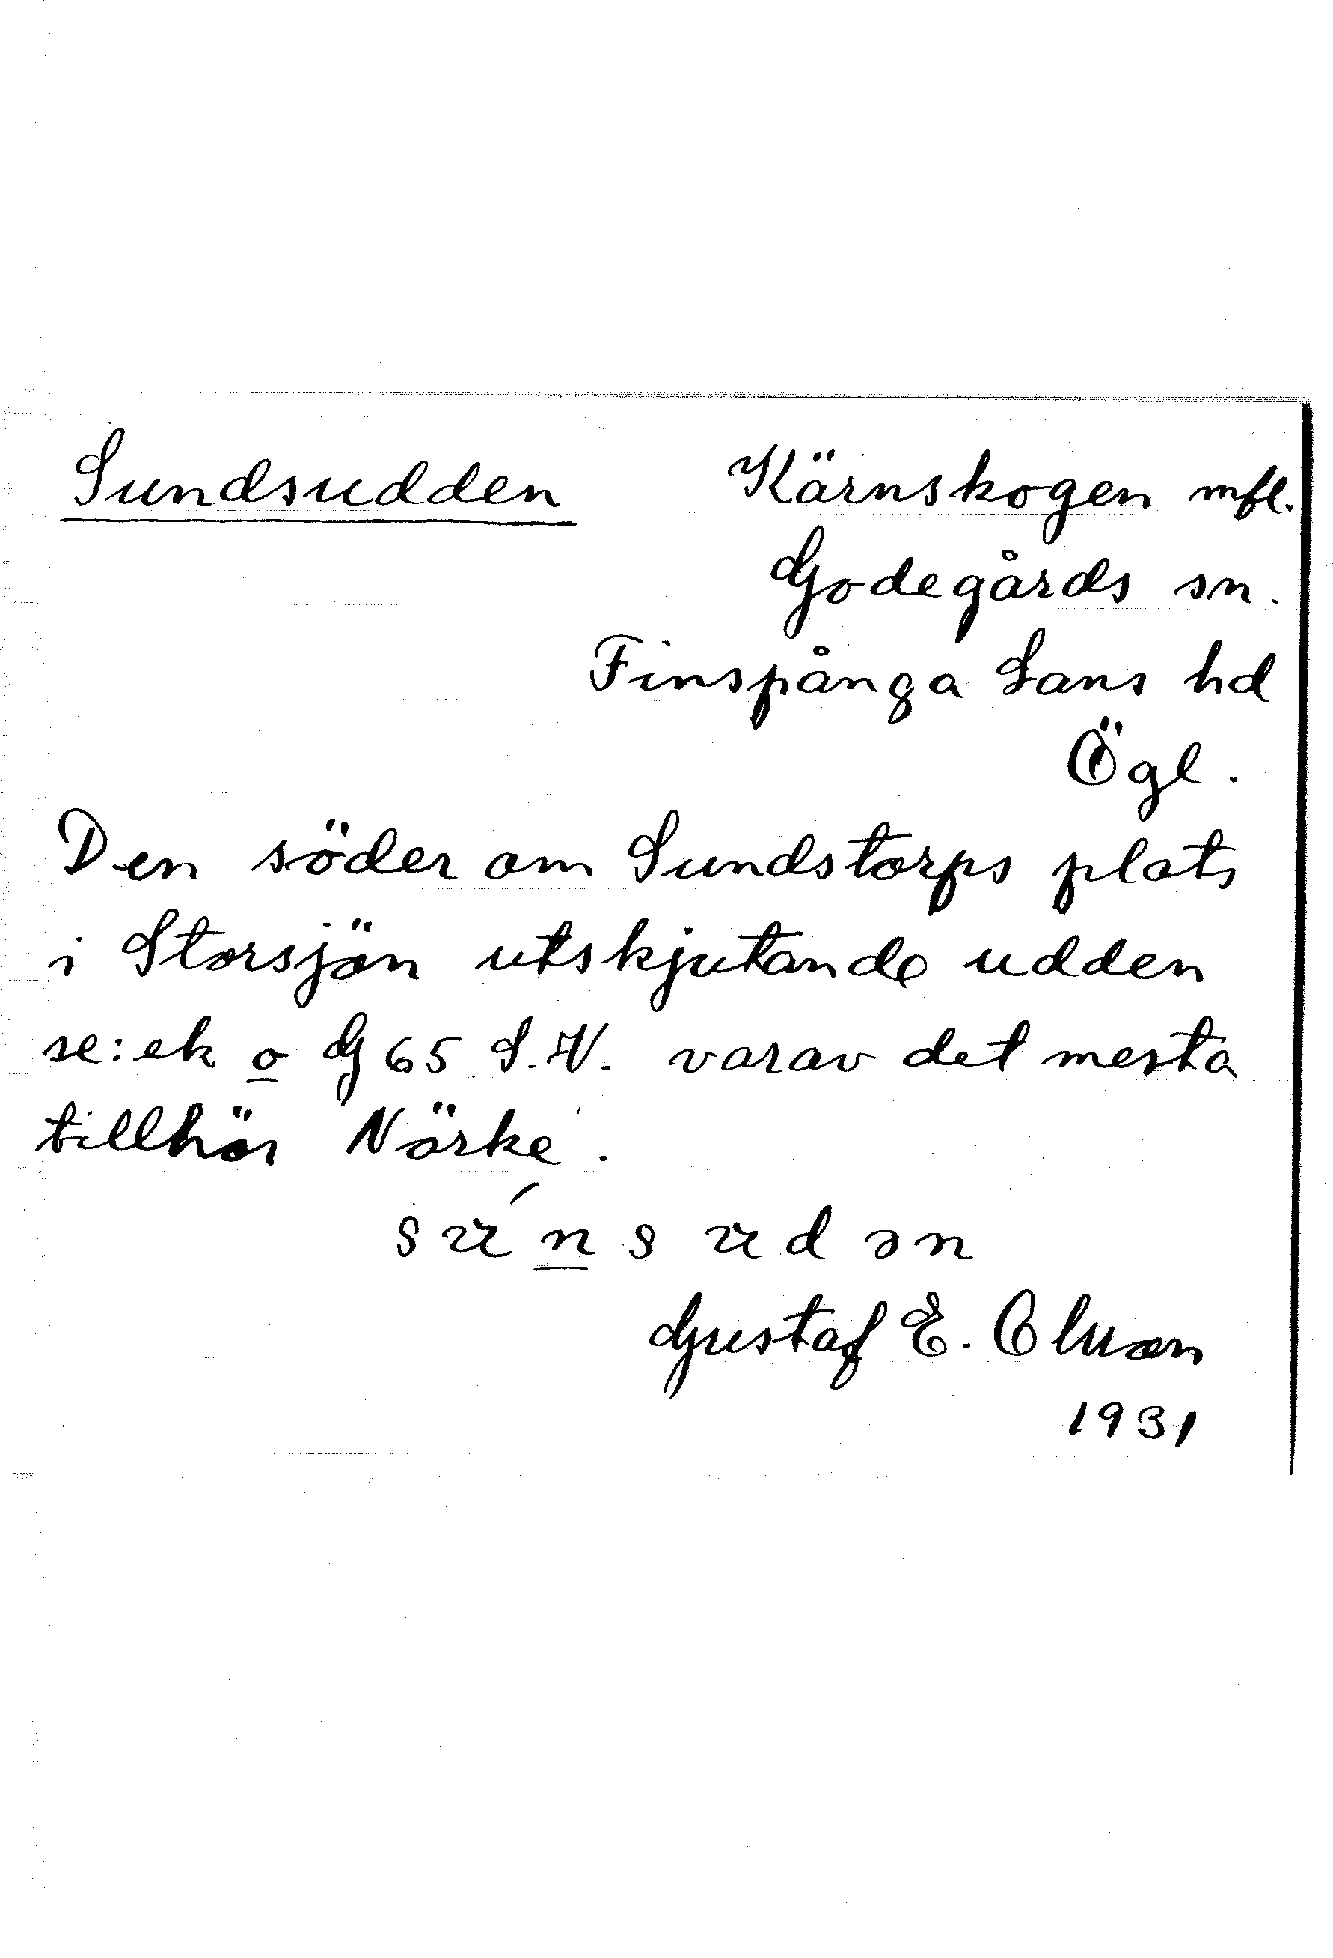 Sundsudden Kärnskogen mfl.
Godegårds sn.
Finspånga Läns hd
Ögl.
Den söder om Sundstorps plats
i Storsjön utskjutande udden
se: ek o G 65 S.V. varav det mesta
tillhör Närke.
súnsudən
Gustaf E. Olsson
1931